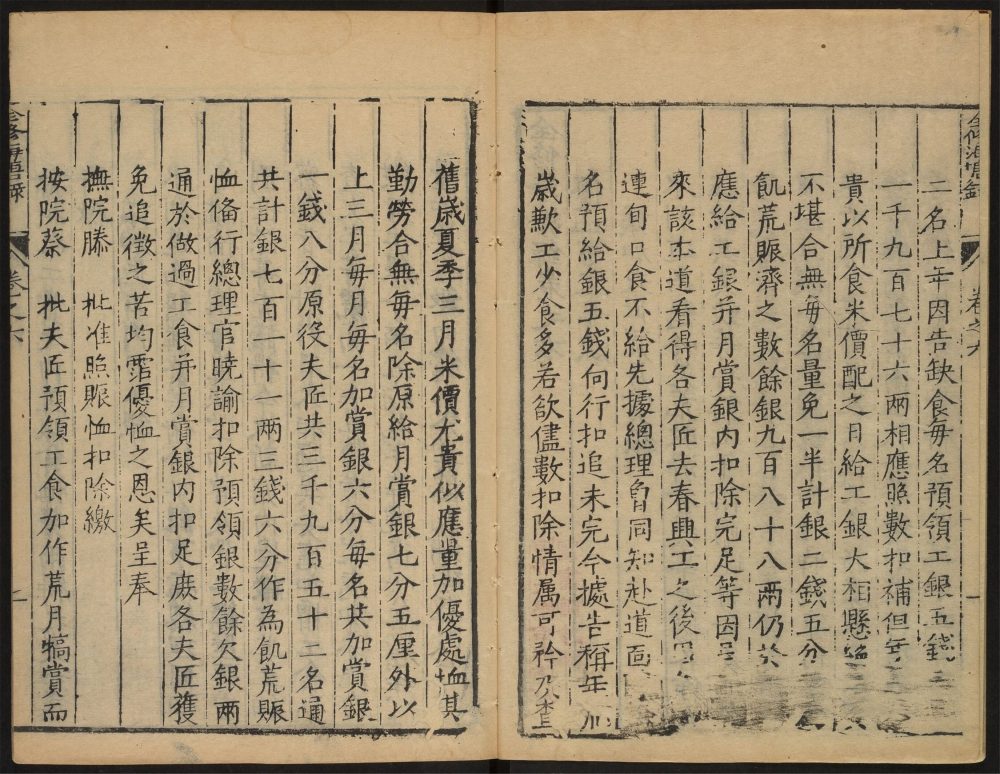 二名上年因告缺食每名預領工銀五錢
一千九百七十六兩相應照數扣補但
貴以所食米價配之日給工銀大相懸
不堪合無每名量免一半計銀二錢五分
飢荒賑濟之數餘銀九百八十八兩仍於
應給工銀并月賞銀內扣除完足等因
來該本道看得各夫匠去春興工之後
連旬口食不給先據總理同知赴道面
名預給銀五錢何行扣追未完今據告稱年
歲歉工少食多若欲儘數扣除情属可矜乃查
舊歲夏季三月米價尤貴似應量加優處恤其
勤勞合無每名除原給月賞銀七分五厘外以
上三月每月每名加賞銀六分每名共加賞銀
一錢八分原役夫匠共三千九百五十二名通
共計銀七百一十一兩三錢六分作為飢荒賑
恤俻行總理官曉諭扣除預領銀數餘欠銀兩
通於做過工食并月賞銀內扣足庶各夫匠獲
免追徵之苦均霑優恤之恩矣呈奉
撫院滕　批准照賑恤扣除繳
按院蔡　批夫匠預領工食加作荒月犒賞而
卷之六
卷之六